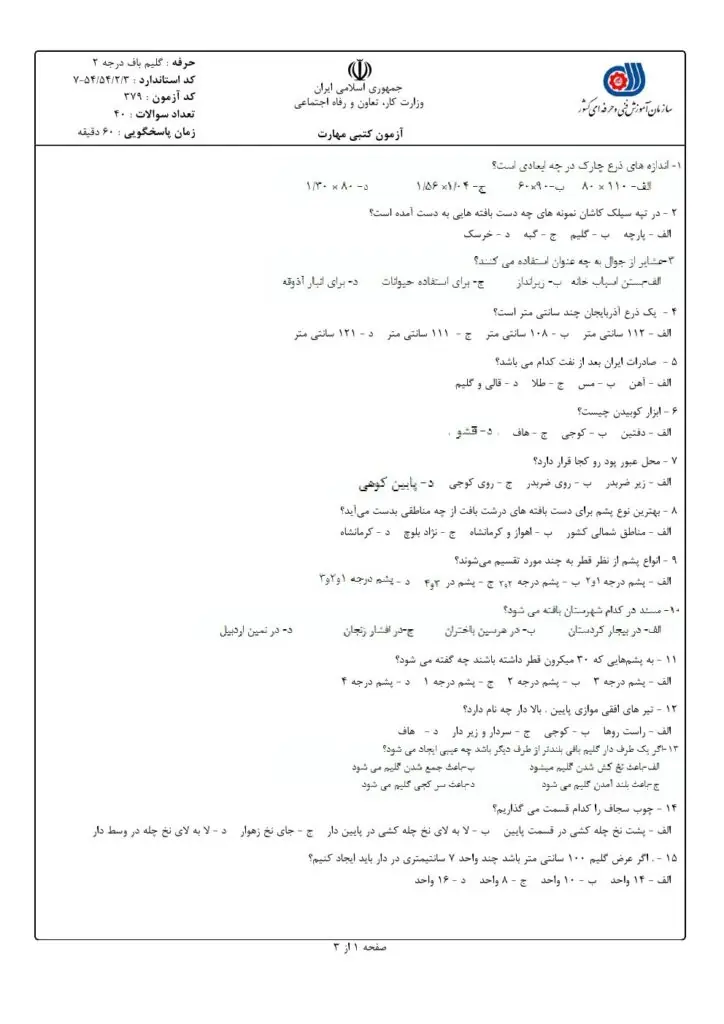 حرفه : گلیم باف درجه ۲
کد استاندارد : ۷-۵۴/۵۴/۲/۳
کد آزمون : ۳۷۹
تعداد سوالات : ۴۰
زمان پاسخگویی : ۶۰ دقیقه
جمهوری اسلامی ایران
وزارت کار، تعاون و رفاه اجتماعی
آزمون کتبی مهارت
سازمان آموزش فنی و حرفه ای کشور
۱- اندازه های ذرع چارک در چه ابعادی است؟
الف- ۱۱۰ × ۸۰ ب-۹۰×۶۰ ج- ۱/۰۴×۱/۵۶ د- ۸۰ × ۱/۳۰
۲ - در تپه سیلک کاشان نمونه های چه دست بافته هایی به دست آمده است؟
الف - پارچه ب - گلیم ج - گبه د - خرسک
۳-عشایر از جوال به چه عنوان استفاده می کنند؟
الف-بستن اسباب خانه ب- زیرانداز ج- برای استفاده حیوانات د- برای انبار آذوقه
۴ - یک ذرع آذربایجان چند سانتی متر است؟
الف - ۱۱۲ سانتی متر ب - ۱۰۸ سانتی متر ج - ۱۱۱ سانتی متر د - ۱۲۱ سانتی متر
۵ - صادرات ایران بعد از نفت کدام می باشد؟
الف - آهن ب - مس ج - طلا د - قالی و گلیم
۶ - ابزار کوبیدن چیست؟
الف - دفتین ب - کوجی ج - هاف . د- قشو .
۷ - محل عبور پود رو کجا قرار دارد؟
الف - زیر ضربدر ب - روی ضربدر ج - روی کوجی د- پایین کوهی
۸ - بهترین نوع پشم برای دست بافته های درشت بافت از چه مناطقی بدست می‌آید؟
الف - مناطق شمالی کشور ب - اهواز و کرمانشاه ج - نژاد بلوچ د - کرمانشاه
۹ - انواع پشم از نظر قطر به چند مورد تقسیم می‌شوند؟
الف - پشم درجه ۱و۲ ب - پشم درجه ۲و۲ ج - پشم در ۳و۴ د - پشم درجه ۱و۲و۳
۱۰- مسند در کدام شهرستان بافته می شود؟
الف- در بیجار کردستان ب- در هرسین باختران ج-در افشار زنجان د- در نمین اردبیل
۱۱ - به پشم‌هایی که ۳۰ میکرون قطر داشته باشند چه گفته می شود؟
الف - پشم درجه ۳ ب - پشم درجه ۲ ج - پشم درجه ۱ د - پشم درجه ۴
۱۲ - تیر های افقی موازی پایین . بالا دار چه نام دارد؟
الف - راست روها ب - کوجی ج - سردار و زیر دار د - هاف
۱۳-اگر یک طرف دار گلیم بافی بلندتر از طرف دیگر باشد چه عیبی ایجاد می شود؟
الف-باعث نخ کش شدن گلیم میشود ب-باعث جمع شدن گلیم می شود
ج-باعث بلند آمدن گلیم می شود د-باعث سر کجی گلیم می شود
۱۴ - چوب سجاف را کدام قسمت می گذاریم؟
الف - پشت نخ چله کشی در قسمت پایین ب - لا به لای نخ چله کشی در پایین دار ج - جای نخ زهوار د - لا به لای نخ چله در وسط دار
۱۵ - . اگر عرض گلیم ۱۰۰ سانتی متر باشد چند واحد ۷ سانتیمتری در دار باید ایجاد کنیم؟
الف - ۱۴ واحد ب - ۱۰ واحد ج - ۸ واحد د - ۱۶ واحد
صفحه ۱ از ۳